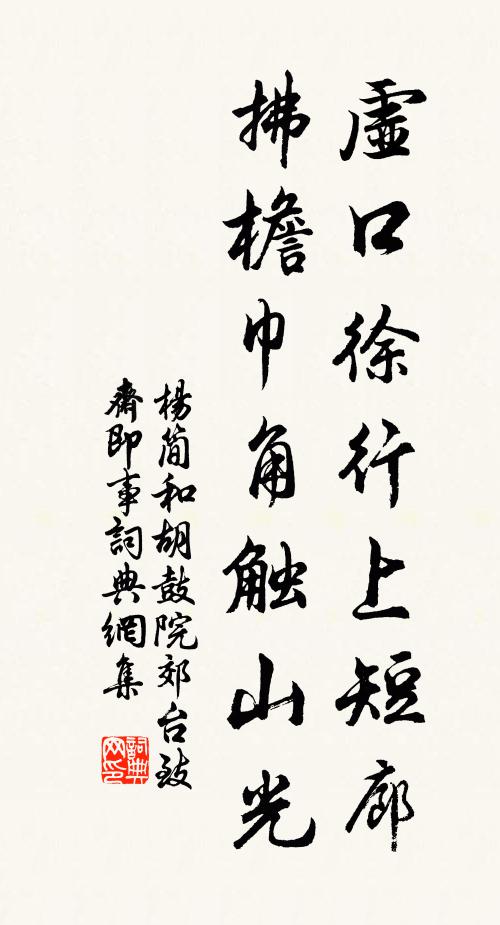 虛口徐行上短廊
拂檐巾角触山光
楊簡和胡鼓院郊台致
齋即事詞典網集
詞典
网印